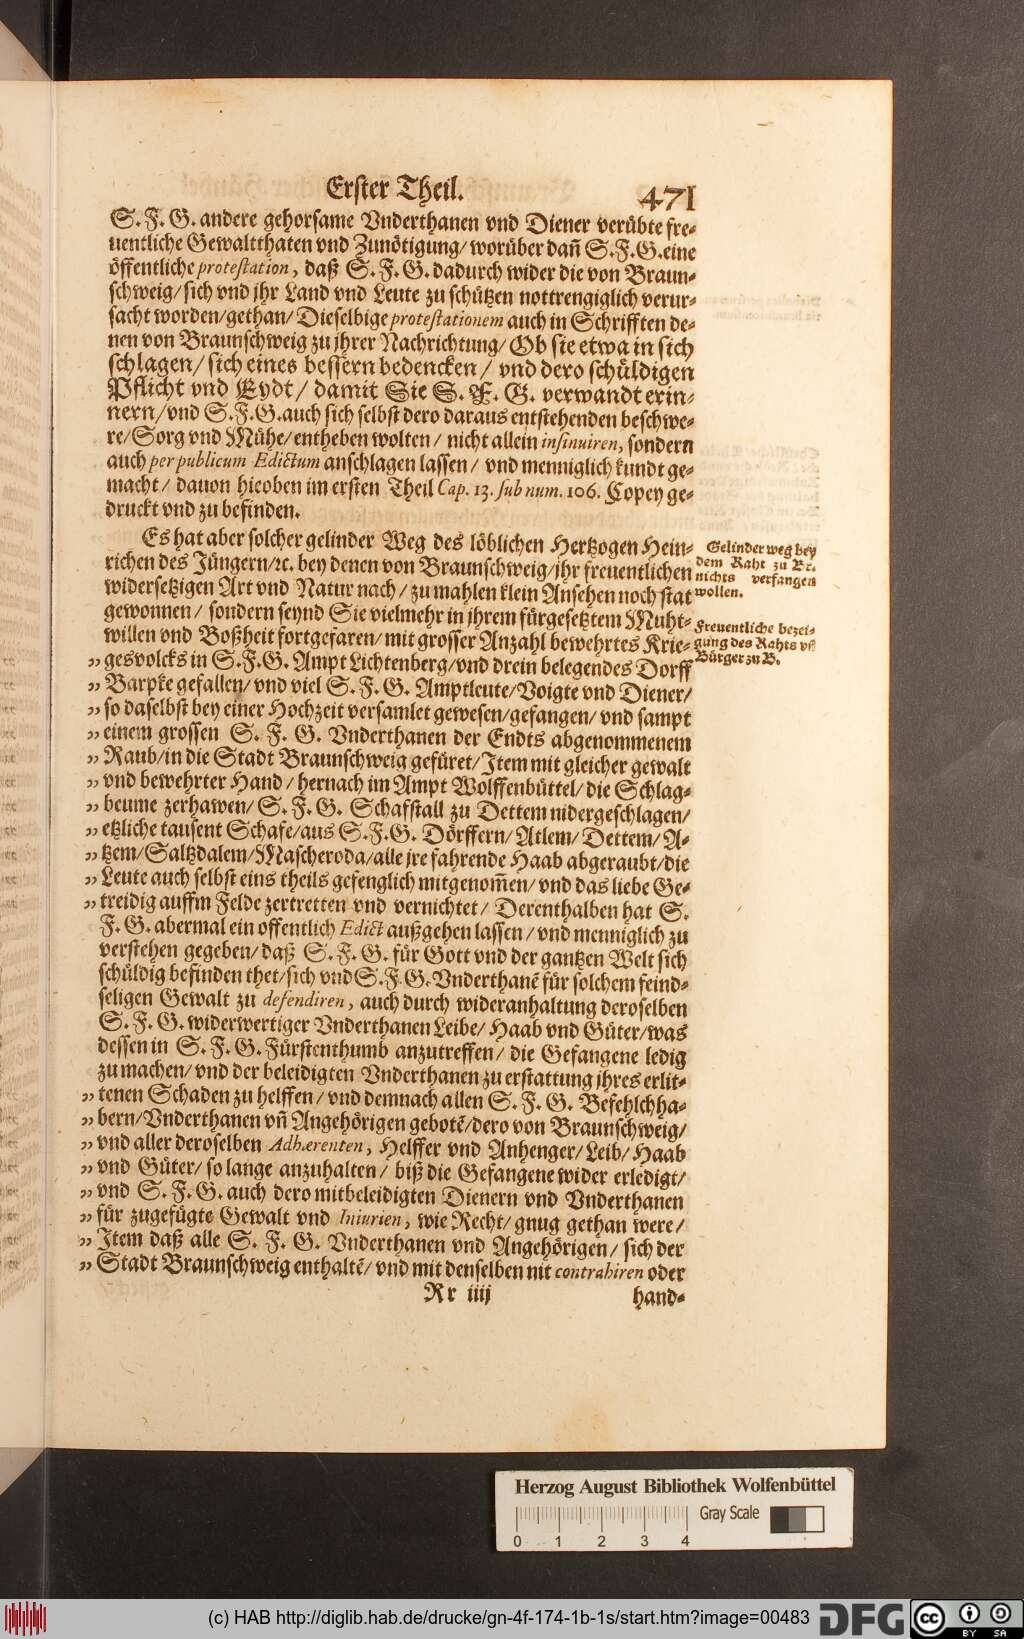 Erster Theil.
471
S. F. G. andere gehorsame Vnderthanen vnd Diener verübte fre-
uentliche Gewaltthaten vnd Zunötigung/ worüber dañ S.F.G. eine
öffentliche protestation, daß S. F. G. dadurch wider die von Braun-
schweig/ sich vnd jhr Land vnd Leute zu schützen nottrengiglich verur-
sacht worden/ gethan/ Dieselbige protestationem auch in Schrifften de-
nen von Braunschweig zu jhrer Nachrichtung/ Ob sie etwa in sich
schlagen/ sich eines bessern bedencken/ vnd dero schüldigen
Pflicht vnd Eydt/ damit Sie S. F. G. verwandt erin-
nern/ vnd S.F.G. auch sich selbst dero daraus entstehenden beschwe-
re/ Sorg vnd Mühe/ entheben wolten/ nicht allein insinuiren, sondern
auch per publicum Edictum anschlagen lassen/ vnd menniglich kundt ge-
macht/ dauon hieoben im ersten Theil Cap. 13. sub num. 106. Copey ge-
druckt vnd zu befinden.
Es hat aber solcher gelinder Weg des löblichen Hertzogen Hein-
richen des Jüngern/ ꝛc. bey denen von Braunschweig/ jhr freuentlichen
widersetzigen Art vnd Natur nach/ zu mahlen klein Ansehen noch stat
gewonnen/ sondern seynd Sie vielmehr in jhrem fürgesetztem Muht-
willen vnd Boßheit fortgefaren/ mit grosser Anzahl bewehrtes Krie-
„ gesvolcks in S.F.G. Ampt Lichtenberg/ vnd drein belegendes Dorff
„ Barpke gefallen/ vnd viel S. F. G. Amptleute/ Voigte vnd Diener/
„ so daselbst bey einer Hochzeit versamlet gewesen/ gefangen/ vnd sampt
„ einem grossen S. F. G. Vnderthanen der Endts abgenommenem
„ Raub/ in die Stadt Braunschweig gefüret/ Item mit gleicher gewalt
„ vnd bewehrter Hand/ hernach im Ampt Wolffenbüttel/ die Schlag-
„ beume zerhawen/ S. F. G. Schafstall zu Dettem nidergeschlagen/
„ etzliche tausent Schafe/ aus S.F.G. Dörffern/ Atlem/ Dettem/ A-
„ tzem/ Saltzdalem/ Mascheroda/ alle jre fahrende Haab abgeraubt/ die
„ Leute auch selbst eins theils gefenglich mitgenom̃en/ vnd das liebe Ge-
„ treidig auffm Felde zertretten vnd vernichtet/ Derenthalben hat S.
F. G. abermal ein offentlich Edict außgehen lassen/ vnd menniglich zu
verstehen gegeben/ daß S. F. G. für Gott vnd der gantzen Welt sich
schüldig befinden thet/ sich vnd S.F.G. Vnderthanē für solchem feind-
seligen Gewalt zu defendiren, auch durch wideranhaltung deroselben
S. F. G. widerwertiger Vnderthanen Leibe/ Haab vnd Güter/ was
dessen in S. F. G. Fürstenthumb anzutreffen/ die Gefangene ledig
zu machen/ vnd der beleidigten Vnderthanen zu erstattung jhres erlit-
„ tenen Schaden zu helffen/ vnd demnach allen S. F. G. Befehlchha-
„ bern/ Vnderthanen vñ Angehörigen gebotē/ dero von Braunschweig/
„ vnd aller deroselben Adhærenten, Helffer vnd Anhenger/ Leib/ Haab
„ vnd Güter/ so lange anzuhalten/ biß die Gefangene wider erledigt/
„ vnd S. F. G. auch dero mitbeleidigten Dienern vnd Vnderthanen
„ für zugefügte Gewalt vnd Iniurien, wie Recht/ gnug gethan were/
„ Item daß alle S. F. G. Vnderthanen vnd Angehörigen/ sich der
„ Stadt Braunschweig enthaltē/ vnd mit denselben nit contrahiren oder
Rr iiij
hand-
Gelinder weg bey
dem Raht zu Br.
nichts verfangen
wollen.
Freuentliche bezei-
gung des Rahts vñ
Bürger zu B.
Herzog August Bibliothek Wolfenbüttel
Gray Scale
0 1 2 3 4
(c) HAB http://diglib.hab.de/drucke/gn-4f-174-1b-1s/start.htm?image=00483
DFG
cc
BY SA